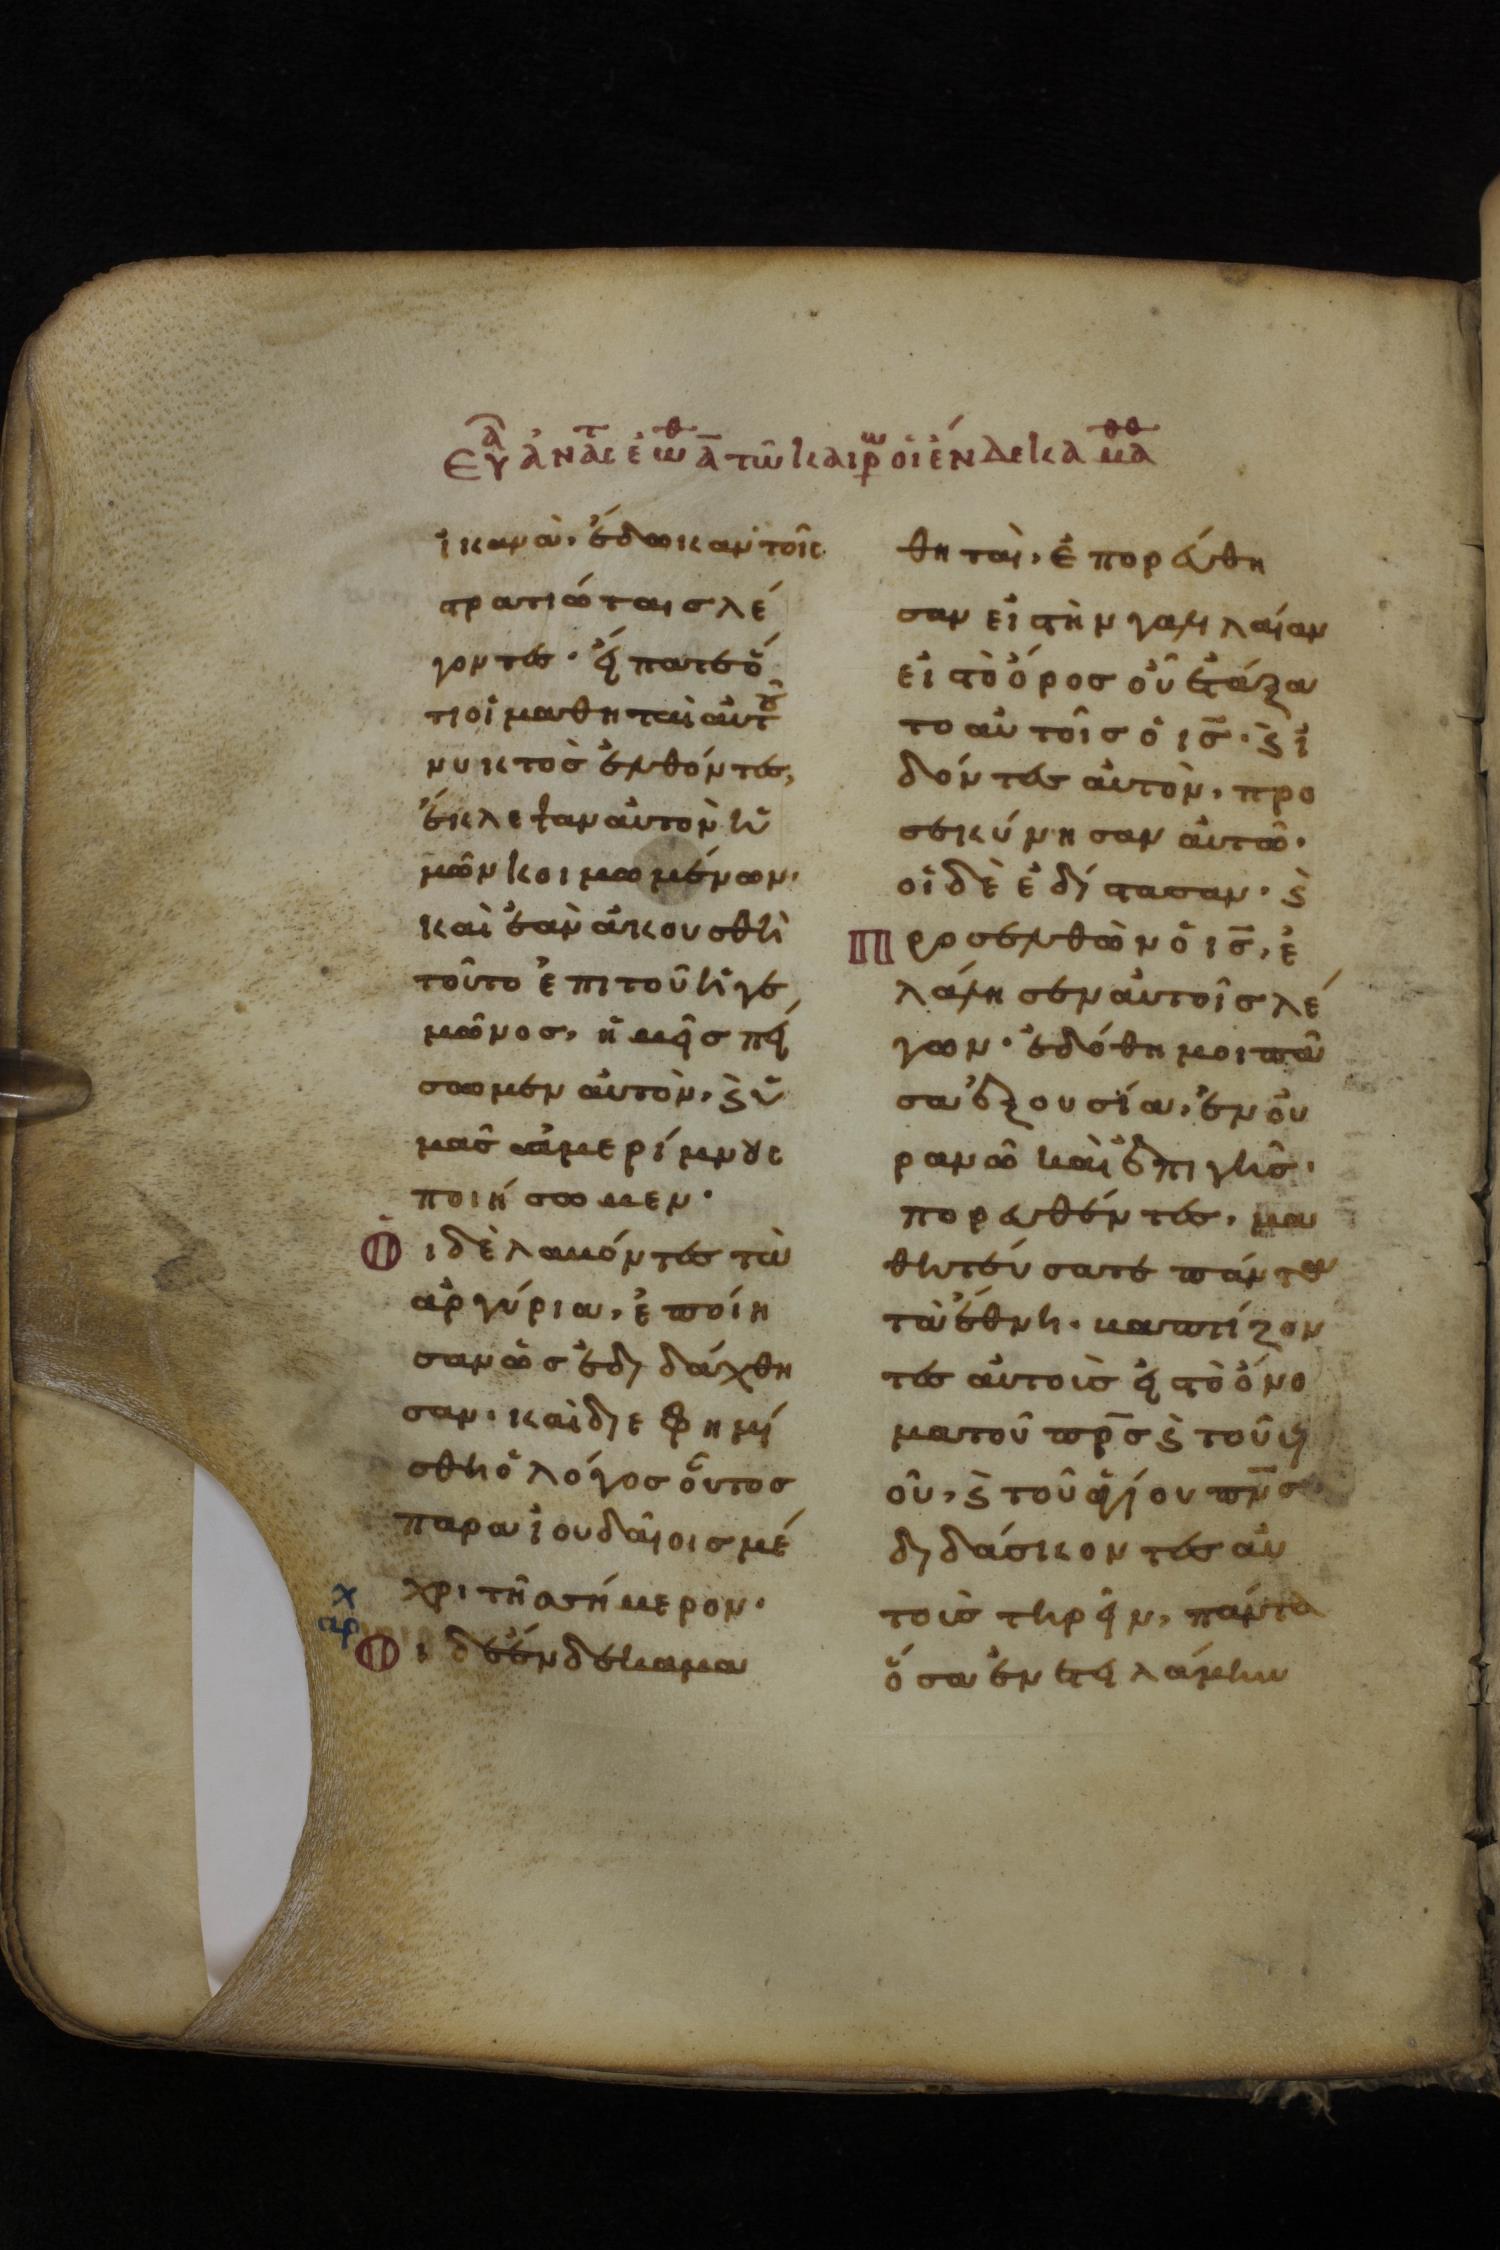 Εὐα ἀναστ ἑωθ ᾱ τῶ καιρω οἱ ἕνδεκα μαθθ
ἱκανὰ, ἔδωκαν τοῖς
στρατιώταισ λέ
γοντεσ· εἴπατε ὅ
τι οἱ μαθηταὶ αὐτοῦ
νυκτὸσ ἐλθόντεσ,
ἔκλεψαν αὐτὸν ἡ
μῶν κοιμωμένων,
καὶ ἐὰν ἀκουσθῆ
τοῦτο ἐπι τοῦ ἡγε
μῶνος, ἡμεῖσ πεί
σωμεν αὐτὸν, ϗ ὑ
μασ ἀμερίμνους
ποιήσωμεν·
Ὁι δὲ λαβόντεσ τὰ
ἀργύρια, ἐποίη
σαν ὡσ ἐδιδάχθη
σαν. καὶ διεφημί
σθη ὁ λόγοσ οὗτοσ
παρα ἰουδαίοισ μέ
χρι τῆσ σήμερον.
χ
αρ
Οι δε ἕνδεκα μα
θηταὶ, ἐπορεύθη
σαν εἰσ τὴν γαλιλαίαν
εἰσ τὸ ὄροσ οὗ ἐτάξα
το αὐτοῖσ ὁ ισ̄. ϗ ἰ
δόντεσ αὐτὸν, προ
σεκύνησαν αὐτῶ.
οἱ δὲ ἐδίστασαν. ϗ
Προσελθὼν ὁ ισ̄, ἐ
λάλησεν αὐτοῖσ λέ
γων. ἐδόθη μοι πᾶ
σα ἐξουσία, ἐν οὐ
ρανῶ καὶ ἐπι γῆσ.
πορευθέντεσ, μα
θητεύσατε πάντα
τὰ ἔθνη. βαπτίζον
τεσ αὐτοὺσ εἰσ τὸ ὄνο
μα τοῦ πρ̄σ ϗ τοῦ υἱ
οῦ, ϗ τοῦ ἁγίου πν̄σ
διδάσκοντεσ αὐ
τοὺσ τηρεῖν, πάντα
ὅσα ἐνετειλάμην